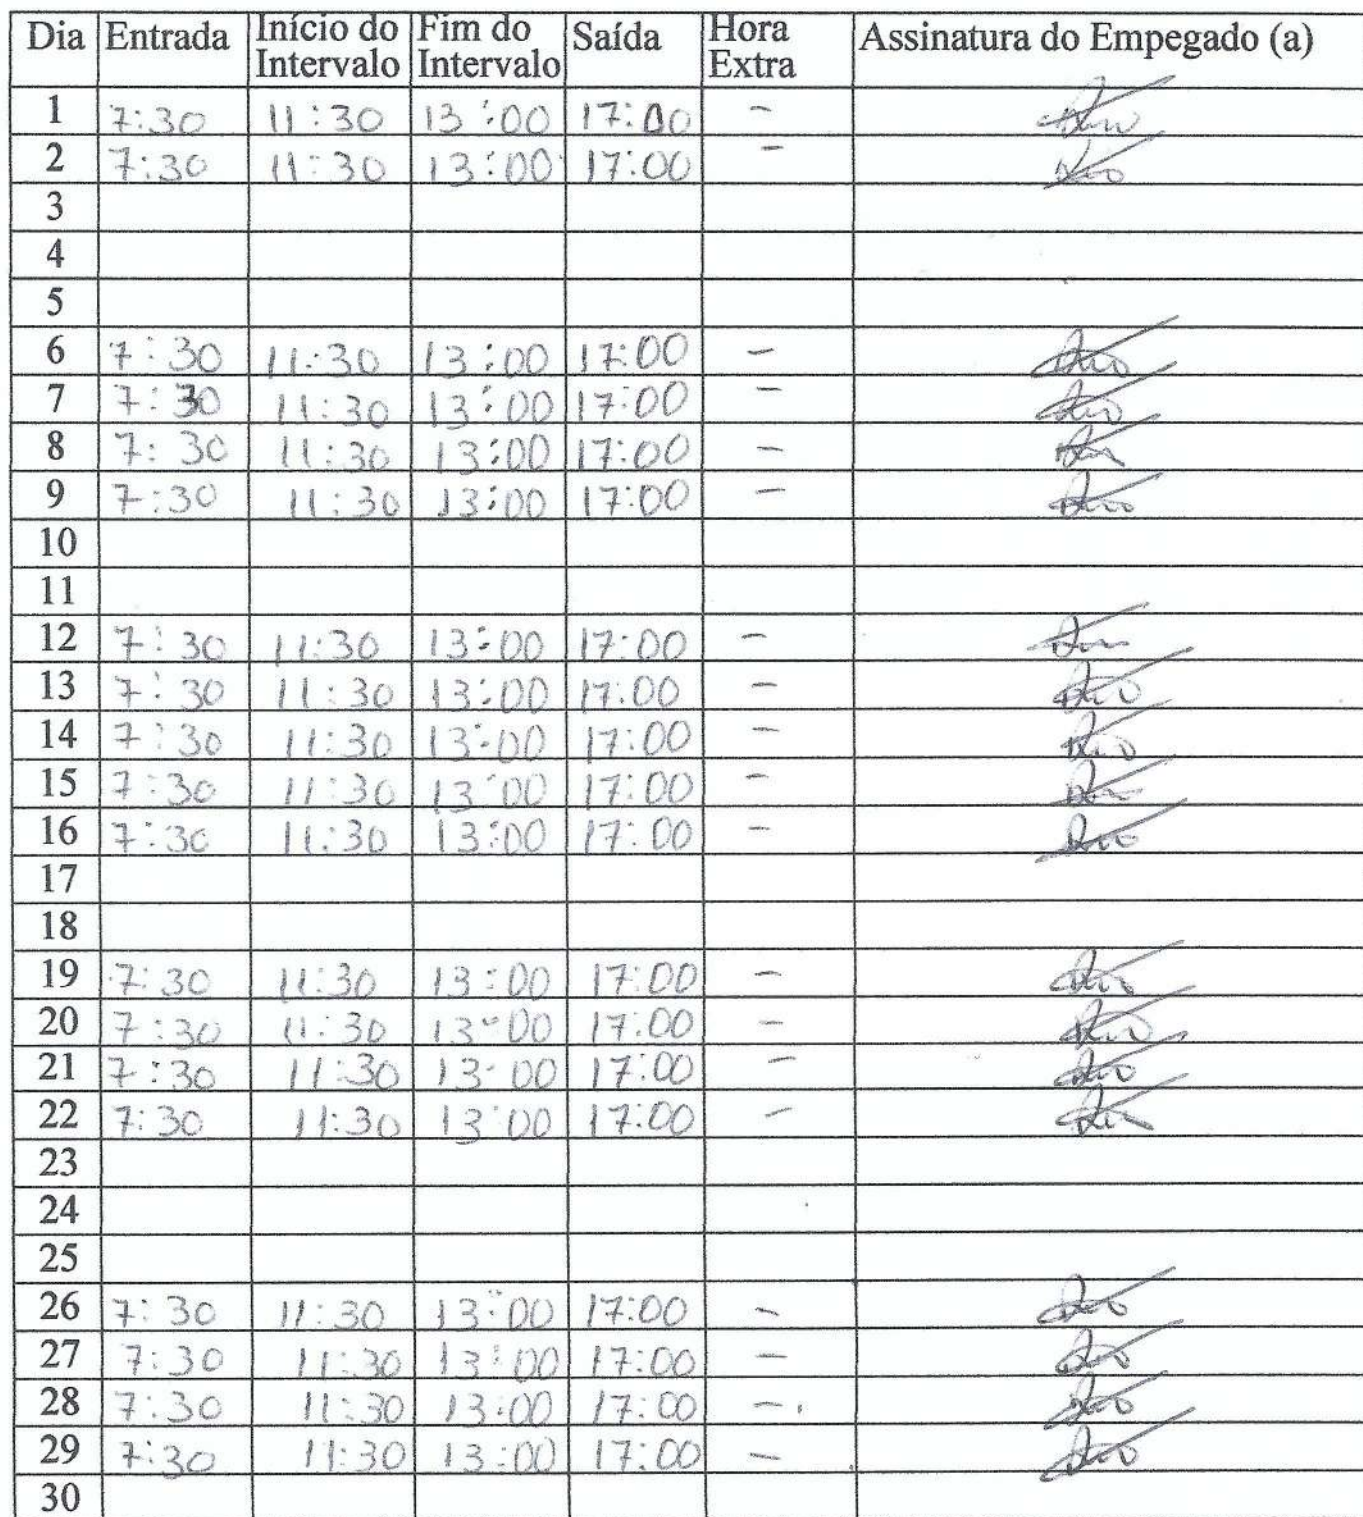 Dia Entrada Início do Intervalo Fim do Intervalo Saída Hora Extra Assinatura do Empegado (a)
1 7:30 11:30 13:00 17:00 -
2 7:30 11:30 13:00 17:00 -
3
4
5
6 7:30 11:30 13:00 17:00 -
7 7:30 11:30 13:00 17:00 -
8 7:30 11:30 13:00 17:00 -
9 7:30 11:30 13:00 17:00 -
10
11
12 7:30 11:30 13:00 17:00 -
13 7:30 11:30 13:00 17:00 -
14 7:30 11:30 13:00 17:00 -
15 7:30 11:30 13:00 17:00 -
16 7:30 11:30 13:00 17:00 -
17
18
19 7:30 11:30 13:00 17:00 -
20 7:30 11:30 13:00 17:00 -
21 7:30 11:30 13:00 17:00 -
22 7:30 11:30 13:00 17:00 -
23
24
25
26 7:30 11:30 13:00 17:00 -
27 7:30 11:30 13:00 17:00 -
28 7:30 11:30 13:00 17:00 -
29 7:30 11:30 13:00 17:00 -
30